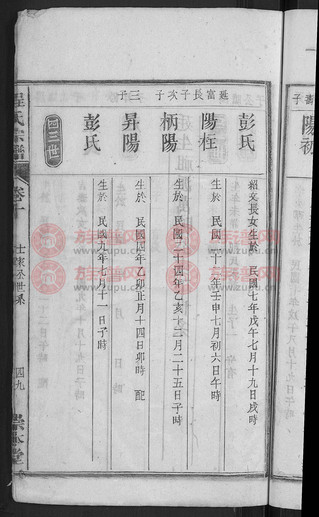 彭氏
紹文長女生於 民國七年戊午七月十九日戌時
延富長子
陽桎
生於 民國二十一年壬申七月初六日午時
次子
柄陽
生於 民國二十四年乙亥十二月二十五日子時
三子
昇陽
生於 民國四年乙卯正月十四日卯時 配
彭氏
生於 民國九年七月十一日子時
四三世
程氏宗譜
卷十
世系
四九